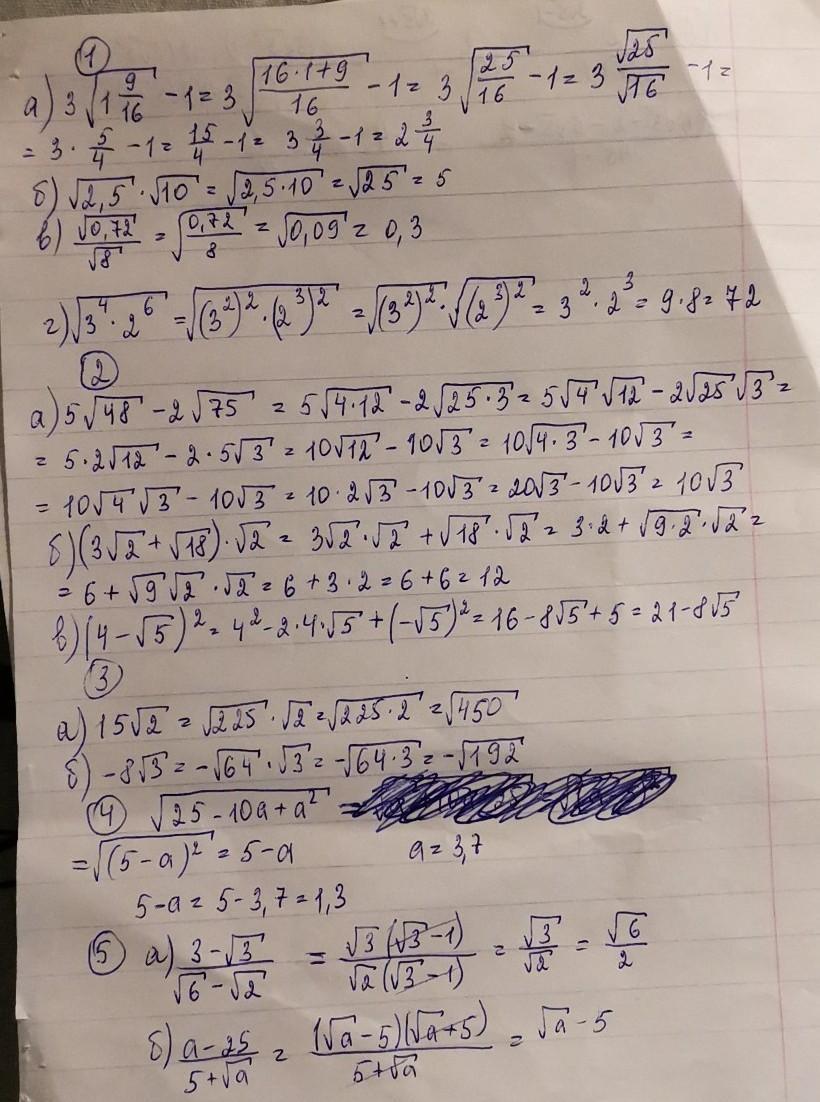 ①
а) 3√(1 9/16) - 1 = 3√((16·1+9)/16) - 1 = 3√(25/16) - 1 = 3 √25/√16 - 1 =
= 3 · 5/4 - 1 = 15/4 - 1 = 3 3/4 - 1 = 2 3/4
б) √2,5 · √10 = √(2,5·10) = √25 = 5
в) √0,72/√8 = √(0,72/8) = √0,09 = 0,3
г) √(3⁴·2⁶) = √((3²)²·(2³)²) = √(3²)² · √(2³)² = 3²·2³ = 9·8 = 72
②
а) 5√48 - 2√75 = 5√(4·12) - 2√(25·3) = 5√4 √12 - 2√25 √3 =
= 5·2√12 - 2·5√3 = 10√12 - 10√3 = 10√(4·3) - 10√3 =
= 10√4 √3 - 10√3 = 10·2√3 - 10√3 = 20√3 - 10√3 = 10√3
б) (3√2 + √18)·√2 = 3√2·√2 + √18·√2 = 3·2 + √(9·2)·√2 =
= 6 + √9 √2·√2 = 6 + 3·2 = 6 + 6 = 12
в) (4 - √5)² = 4² - 2·4·√5 + (-√5)² = 16 - 8√5 + 5 = 21 - 8√5
③
а) 15√2 = √225·√2 = √(225·2) = √450
б) -8√3 = -√64·√3 = -√(64·3) = -√192
④ √(25 - 10a + a²) =
= √((5-a)²) = 5-a a = 3,7
5-a = 5-3,7 = 1,3
⑤ а) (3-√3)/(√6-√2) = √3(√3-1)/√2(√3-1) = √3/√2 = √6/2
б) (a-25)/(5+√a) = (√a-5)(√a+5)/(5+√a) = √a - 5